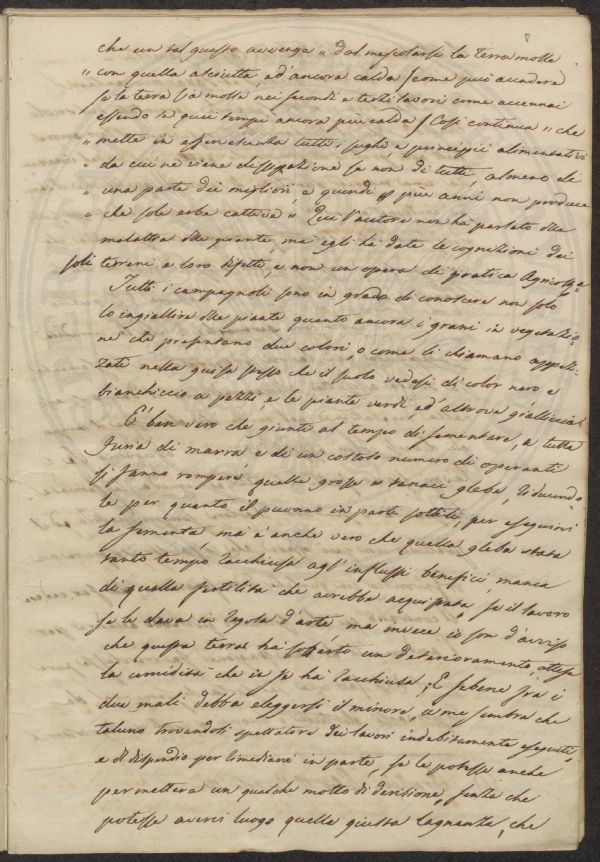 che un tal guasto avvenga " dal mescolarsi la terra molle
" con quella asciutta ed' ancora calda (come può accadere
se la terra sia molle, nei secondi e terzi lavori come accennai
essendo in quei tempi ancora più calda) Così continua " che
" mette in effervescenza tutti i sughi, e principii alimentativi
" da cui ne viene dissipazione se non di tutti, almeno di
" una parte dei migliori, e quindi per più anni non produce
" che sole erbe cattive " Qui l'autore non ha parlato della
malattia delle piante, ma egli ha date le cognizioni dei
soli terreni e loro difetti, e non un opera di pratica Agricoltura
Tutti i campagnoli sono in grado di conoscere non solo
lo ingiallire delle piante quanto ancora i grani in vegetazio
ne che presentano due colori, o come li chiamano appez-
zate nella guisa stessa che il suolo vedesi di color nero e
bianchiccio a pezzi, e le piante verdi ed' altrove gialliccie
E' ben vero che giunti al tempo di sementare, a tutta
furia di marra e di un costoso numero di operanti
si fanno rompere quelle grosse e tenaci glebe, riducendo-
le per quanto il puonno in parte sottili, per eseguirvi
la sementa, ma è anche vero che quella gleba stata
tanto tempo racchiusa agl'influssi benefici, manca
di quella fertilità che avrebbe acquistata, se il lavoro
se le dava in regola d'arte, ma invece io son d'avviso
che questa terra ha sofferto un deterioramento, attesa
la umidità che in se ha racchiusa. E sebene fra i
due mali debba eleggersi il minore, a me sembra che
taluno trovandosi spettatore dei lavori indebitamente eseguiti,
e il dispendio per rimediarvi in parte, se le potesse anche
permettere un qualche motto di derisione, senza che
potesse averci luogo quella giusta lagnanza, che